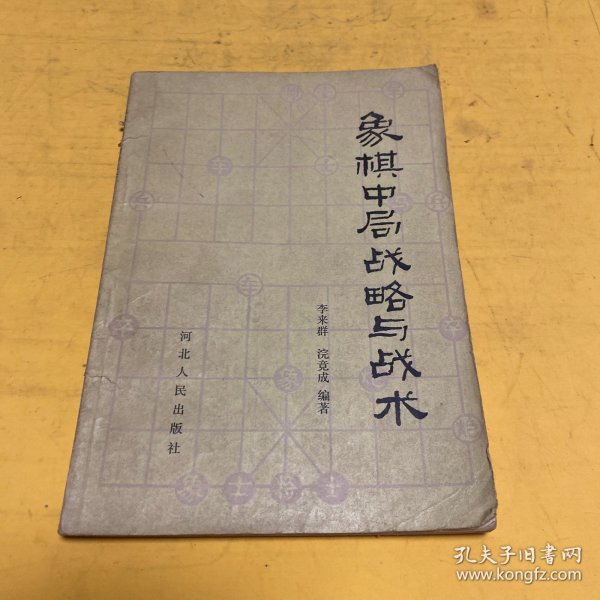 象棋中局战略与战术
李来群 浣竟成 编著
河北人民出版社
孔夫子旧书网
www.kongfz.com